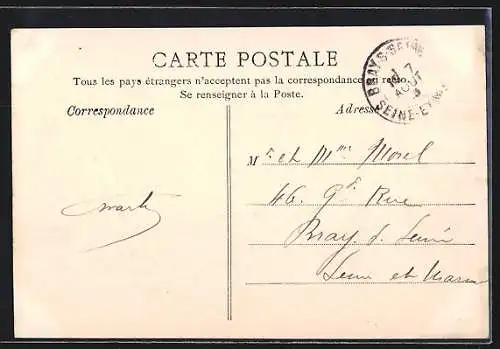 CARTE POSTALE
Tous les pays étrangers n'acceptent pas la correspondance au recto.
Se renseigner à la Poste.
Correspondance
Adresse
BRAY-S-SEINE
7
AOUT
SEINE-ET-M
Mr et Mme Morel
46. Gde Rue
Bray. s. Seine
Seine et Marne